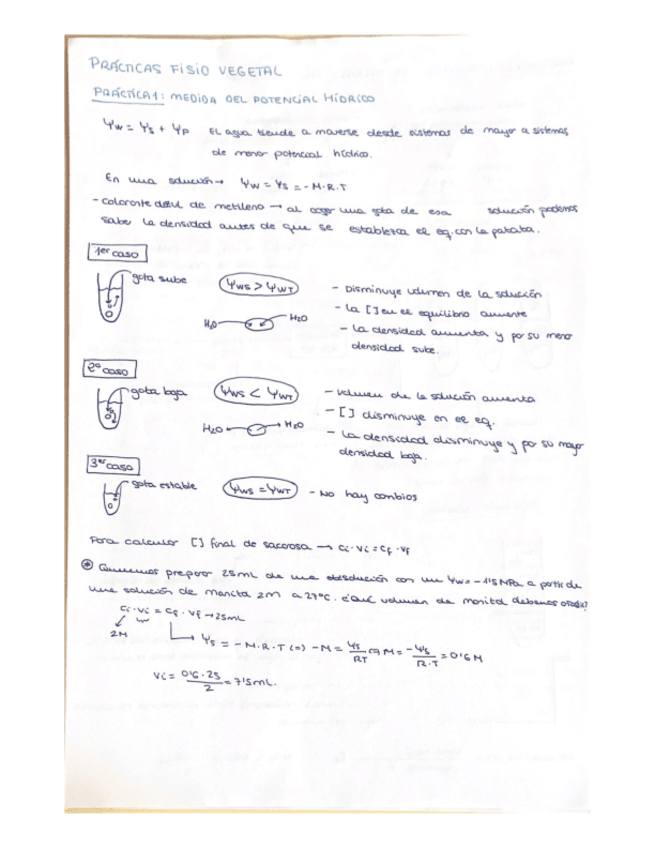 PRÁCTICAS FISIO VEGETAL
PRÁCTICA 1: MEDIDA DEL POTENCIAL HÍDRICO
Ψw = Ψs + Ψp El agua tiende a moverse desde sistemas de mayor a sistemas
de menor potencial hídrico.
En una solución → Ψw = Ψs = - M·R·T
- colorante azul de metileno → al coger una gota de esa solución podemos
saber la densidad antes de que se establezca el eq. con la patata.
1er caso
gota sube
Ψws > ΨwT
H2O
H2O
- Disminuye volumen de la solución
- La [ ] en el equilibrio aumenta
- La densidad aumenta y por su menor
densidad sube.
2º caso
gota baja
Ψws < ΨwT
H2O
H2O
- volumen de la solución aumenta
- [ ] disminuye en el eq.
- La densidad disminuye y por su mayor
densidad baja.
3er caso
gota estable
Ψws = ΨwT
- No hay cambios
Para calcular [ ] final de sacarosa → Ci·Vi = Cf·Vf
* Queremos preparar 25mL de una disolución con un Ψw = -1'5 MPa a partir de
una solución de 2M a 27ºC. ¿Qué volumen de debemos
Ci·Vi = Cf·Vf → 25mL
2M
Ψs = - M·R·T (=) - M = Ψs/RT M = -Ψs/R·T = 0'6 M
Vi = 0'6·25/2 = 7'5mL.